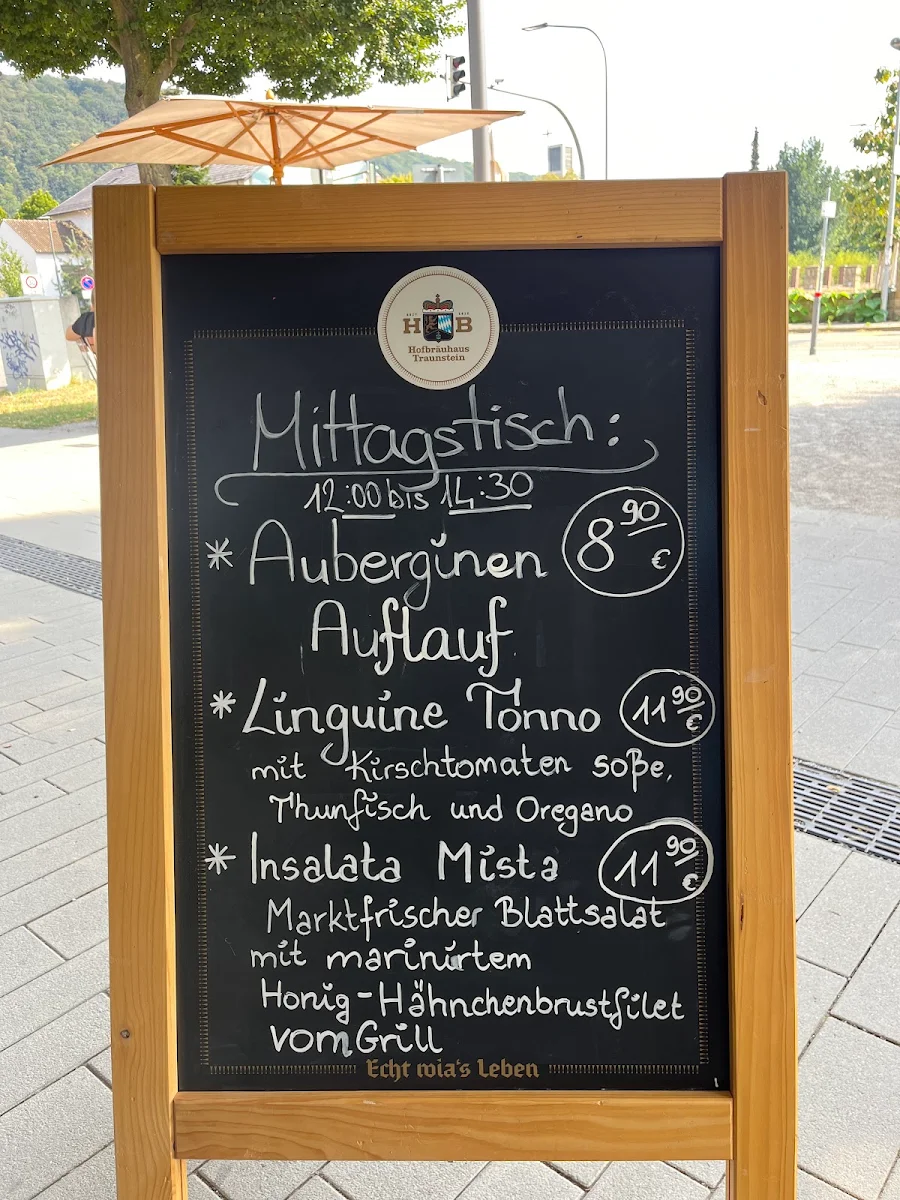 H B
Hofbräuhaus
Traunstein
Mittagstisch:
12:00 bis 14:30
* Auberginen 8 90 €
Auflauf
* Linguine Tonno 11 90 €
mit Kirschtomaten soße,
Thunfisch und Oregano
* Insalata Mista 11 90 €
Marktfrischer Blattsalat
mit marinirtem
Honig-Hähnchenbrustfilet
vom Grill
Echt wia's Leben